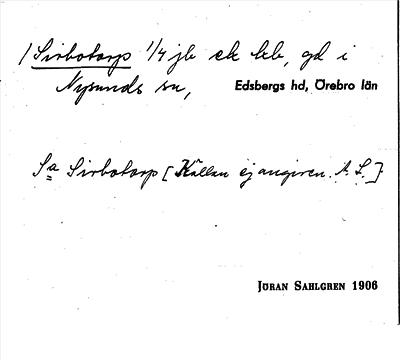 / Sirbotorp 1/4 jb ek kb, gd i
Nysunds sn, Edsbergs hd, Örebro län
Sa Sirbotorp [Källan ej angiven. A. L.]
JÖRAN SAHLGREN 1906